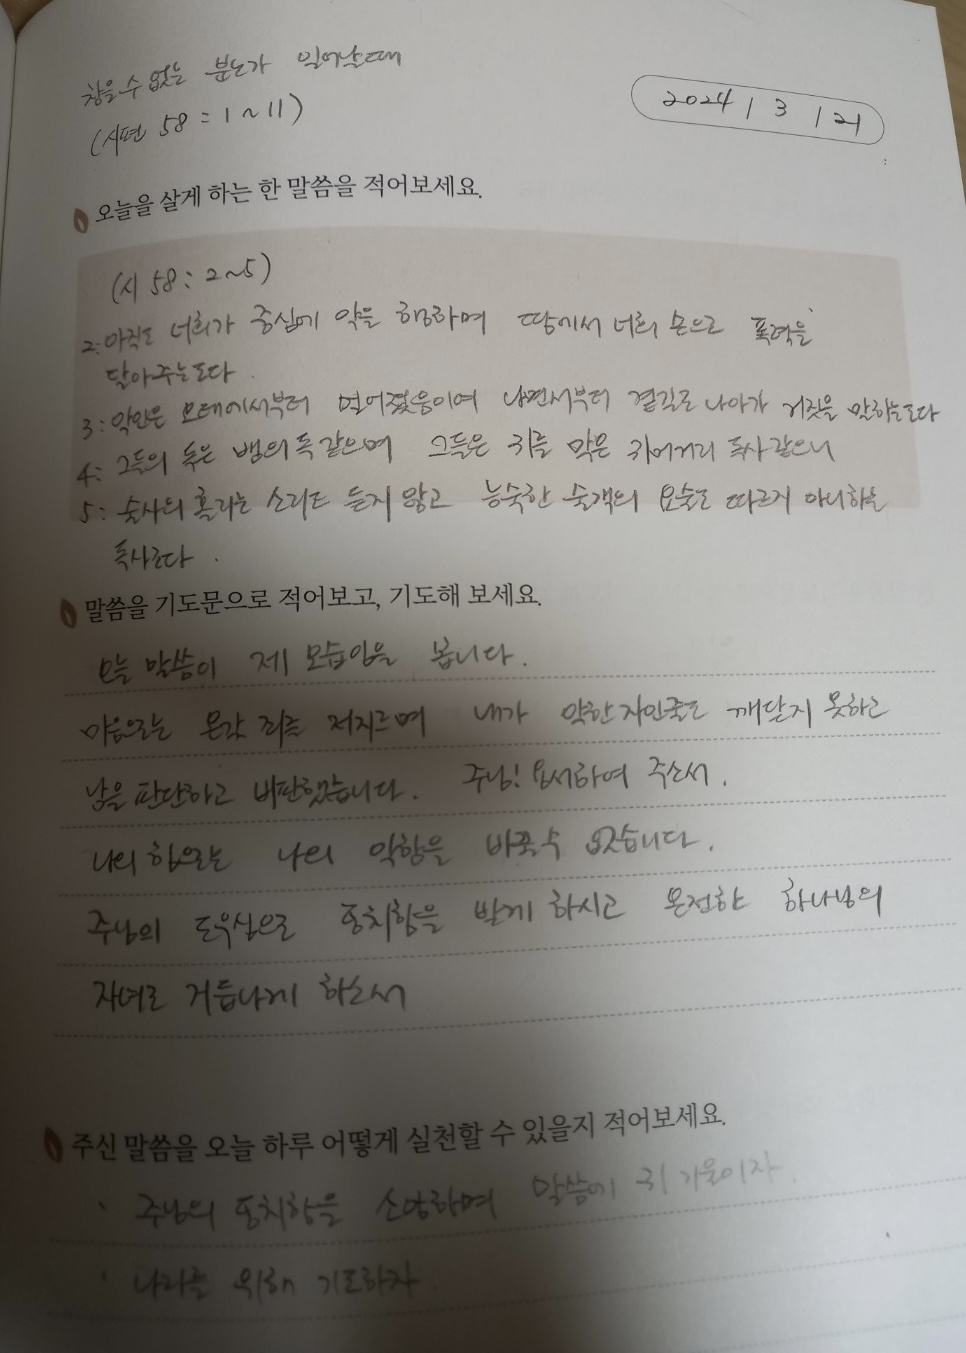 참을 수 없는 분노가 일어날때
(시편 58 : 1 ~ 11)
2024 / 3 / 21
오늘을 살게 하는 한 말씀을 적어보세요.
(시 58 : 2~5)
2: 아직도 너희가 중심에 악을 행하며 땅에서 너희 손으로 폭력을
달아주는도다.
3: 악인은 모태에서부터 멀어졌음이여 나면서부터 곁길로 나아가 거짓을 말하는도다
4: 그들의 독은 뱀의 독 같으며 그들은 귀를 막은 귀머거리 독사 같으니
5: 술사의 홀리는 소리도 듣지 않고 능숙한 술객의 요술도 따르지 아니하는
독사로다.
말씀을 기도문으로 적어보고, 기도해 보세요.
오늘 말씀이 제 모습임을 봅니다.
마음으로는 온갖 죄를 저지르며 내가 악한 자인줄도 깨닫지 못하고
남을 판단하고 비판했습니다. 주님! 용서하여 주소서.
나의 힘으로는 나의 악함을 바꿀수 없습니다.
주님의 도우심으로 통치함을 받게 하시고 온전한 하나님의
자녀로 거듭나게 하소서
주신 말씀을 오늘 하루 어떻게 실천할 수 있을지 적어보세요.
· 주님의 통치함을 소망하며 말씀에 귀 기울이자.
· 나라를 위해 기도하자.